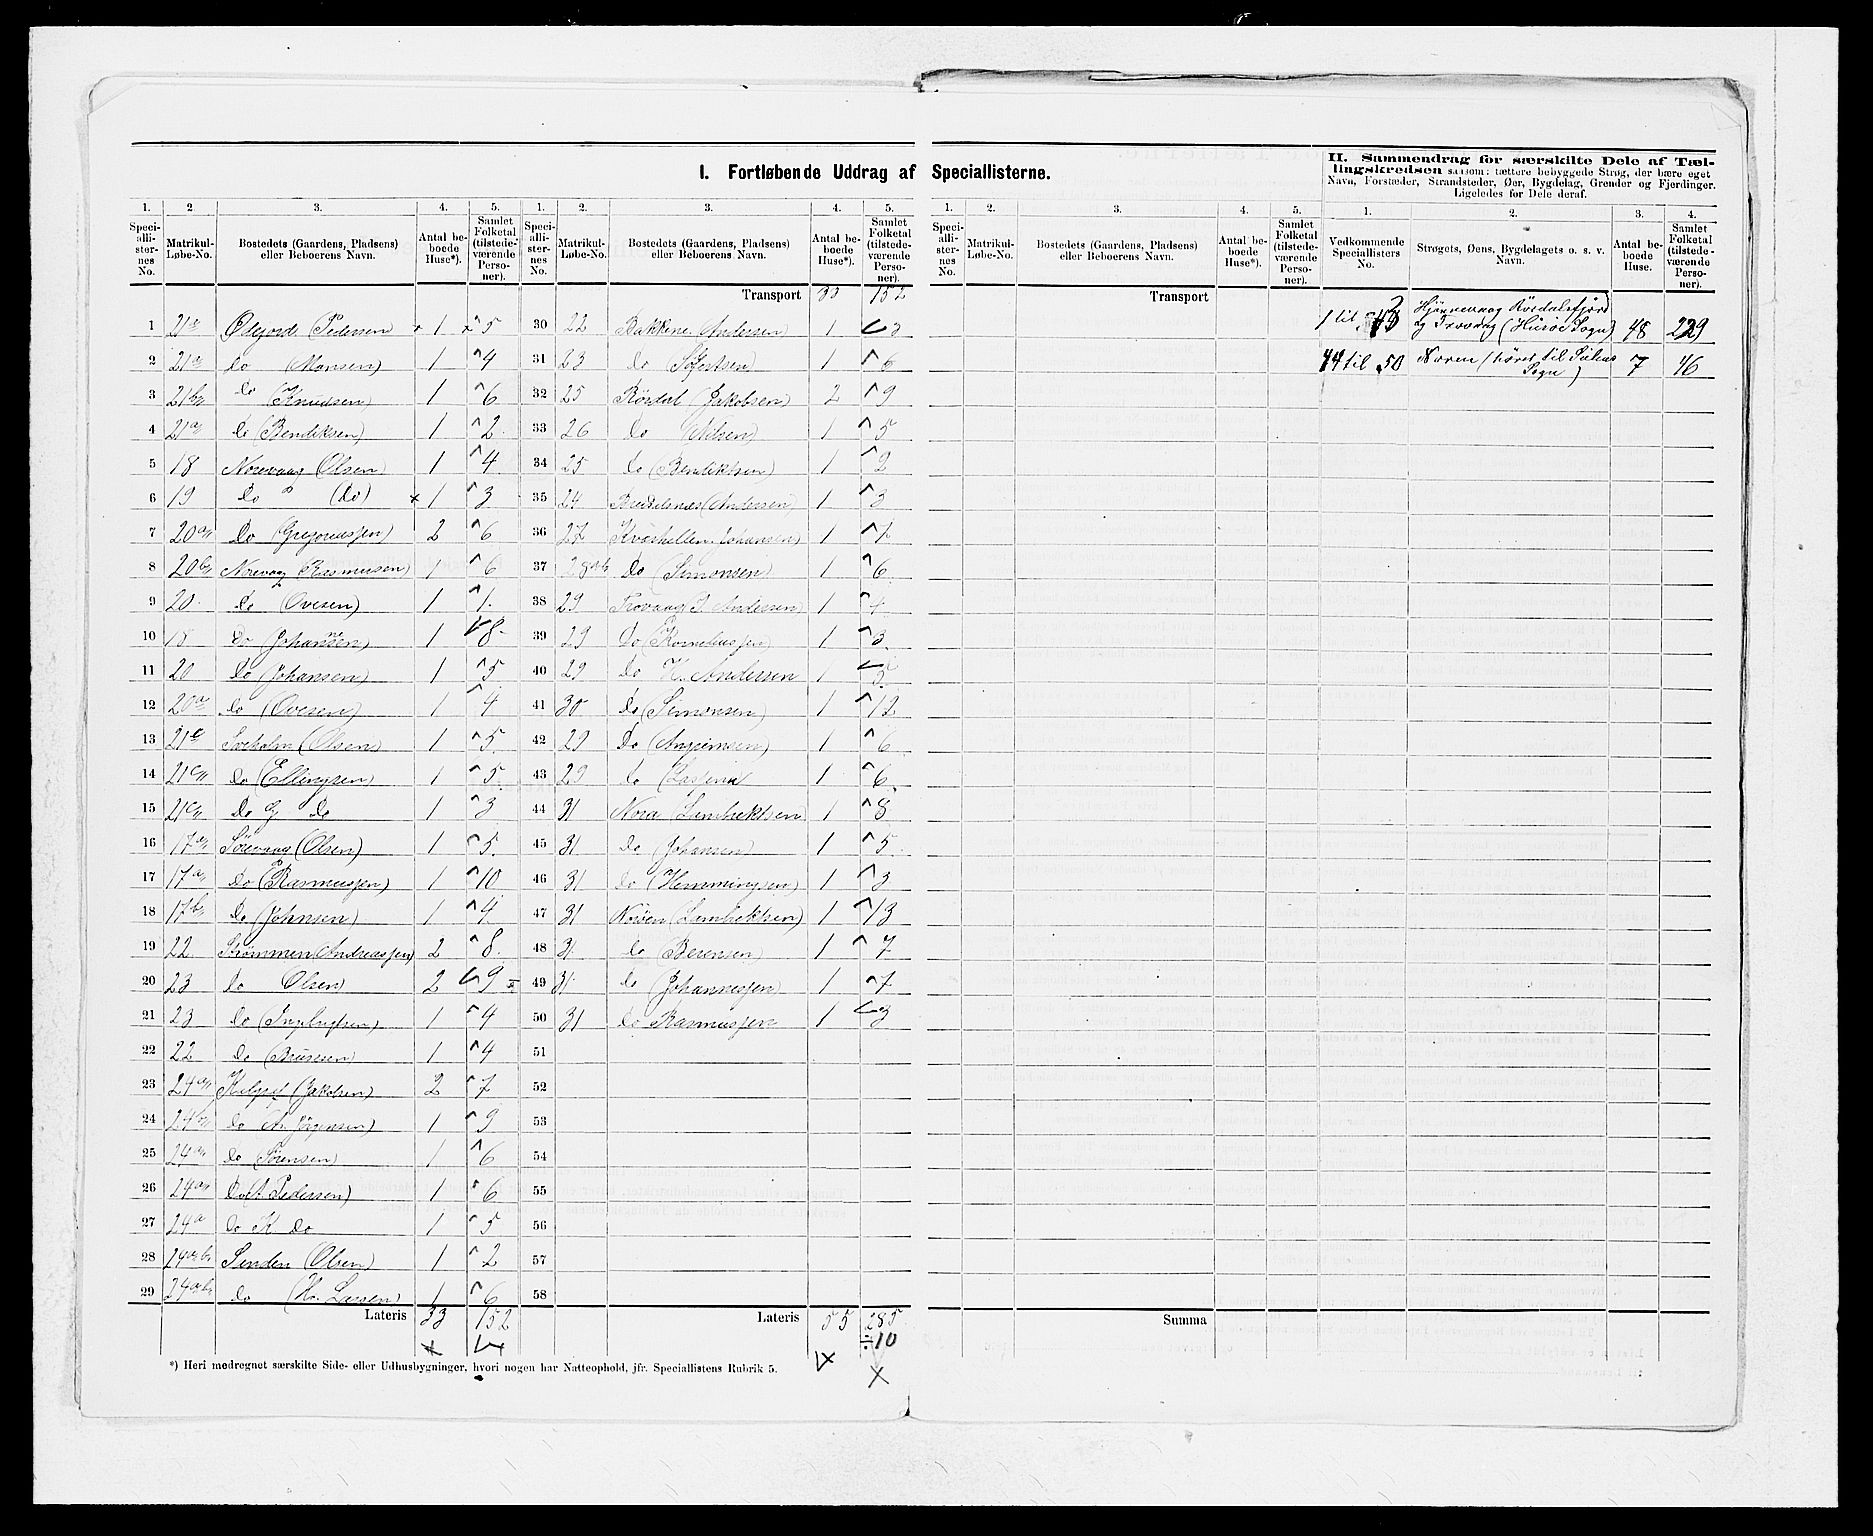 I. Fortløbende Uddrag af Speciallisterne.
II. Sammendrag for særskilte Dele af Tæl-
lingskredsen saasom: tættere bebyggede Strøg, der bære eget
Navn, Forstæder, Strandsteder, Øer, Bygdelag, Grender og Fjerdinger.
Ligeledes for Dele deraf.
1. 2 3. 4. 5. 1. 2. 3. 4. 5. 1. 2. 3. 4. 5. 1. 2. 3. 4.
Speci-alli-ster-nes No. Matrikul-Løbe-No. Bostedets (Gaardens, Pladsens) eller Beboerens Navn. Antal be-boede Huse*). Samlet Folketal (tilstede-værende Perso-ner).
Speci-alli-ster-nes No. Matrikul-Løbe-No. Bostedets (Gaardens, Pladsens) eller Beboerens Navn. Antal be-boede Huse*). Samlet Folketal (tilstede-værende Perso-ner).
Speci-alli-ster-nes No. Matrikul-Løbe-No. Bostedets (Gaardens, Pladsens) eller Beboerens Navn. Antal be-boede Huse*). Samlet Folketal (tilstede-værende Perso-ner).
Vedkommende Speciallisters No. Strøgets, Øens, Bygdelagets o. s. v. Navn. Antal be-boede Huse. Samlet Folketal (tilstede-værende Personer).
Transport 33 152
Transport
1 (Pedersen 1 5
2 21a do (Monsen) 1 4
3 21b do (Knudsen) 1 6
4 21a do (Bendiksen) 1 2
5 18 Norevaag (Olsen) 1 4
6 19 do (do) 1 3
7 20a do (Gregoriussen) 2 6
8 20b Norevaag (Rasmussen) 1 6
9 20 do (Ovesen) 1 1
10 18 do 1 8
11 20 do (Johansen) 1 5
12 20a do (Ovesen) 1 4
13 21c (Olsen) 1 5
14 21c do (Ellingsen) 1 5
15 21c do G do 1 3
16 17a Sörevaag (Olsen) 1 5
17 17a do (Rasmussen) 1 10
18 17b do (Johnsen) 1 4
19 22 Strømmen Andreassen) 2 8
20 23 do Olsen) 2 9
21 23 do 1 4
22 22 do 1 4
23 24a (Jakobsen) 2 7
24 24 do 1 9
25 24a do Sörensen) 1 6
26 24a do (A Pedersen) 1 6
27 24a do K do 1 5
28 24ab Sanden (Olsen) 1 2
29 24ab do 1 6
Lateris 33 152
30 22 Bakkene Andersen) 1 3
31 23 do 1 6
32 25 (Jakobsen) 2 9
33 26 do (Nilsen) 1 5
34 25 do (Bendiktsen) 1 2
35 24 (Andersen) 1 3
36 27 Johansen) 1
37 28ab do (Simonsen) 1 6
38 29 Trovaag Andersen) 1
39 29 do (Korneliussen) 1 3
40 29 do K. Andersen 1 5
41 30 do (Simonsen) 1 12
42 29 do 1 6
43 29 do 1 6
44 31 Nora (Lambrektsen) 1 8
45 31 do (Johansen) 1 5
46 31 do (Hemmingsen) 1 3
47 31 (Lambrektsen) 1 13
48 31 do (Berensen) 1 7
49 31 do (Johannessen) 1 7
50 31 do Rasmussen 1 3
51
52
53
54
55
56
57
58
Lateris 55 285
÷10
Summa
1 til 43
og Trovaag (Husöe Sogn) 48 229
44 til 50 Noren (höret til
Sogn) 7 46
*) Heri medregnet særskilte Side- eller Udhusbygninger, hvori nogen har Natteophold, jfr. Speciallistens Rubrik 5.